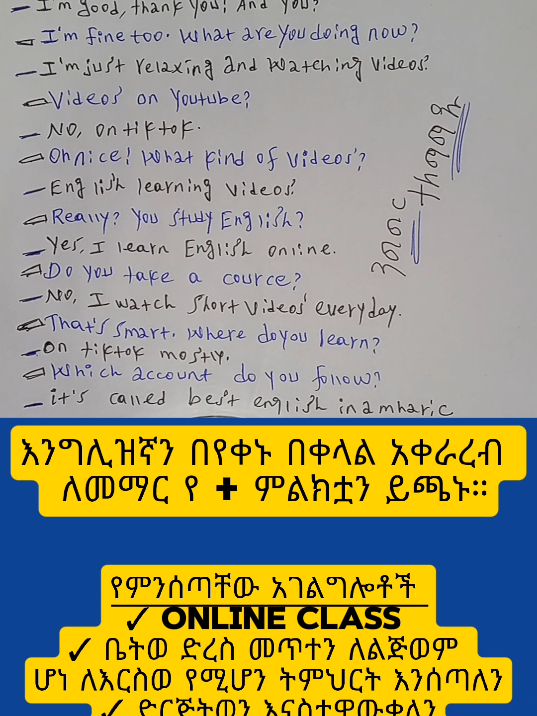 – I'm good, thank you! And you?
– I'm fine too. What are you doing now?
– I'm just relaxing and watching videos.
– Videos on Youtube?
– No, on tiktok.
– Oh nice! What kind of videos?
– English learning videos.
– Really? You study English?
– Yes, I learn English online.
– Do you take a cource?
– No, I watch short videos everyday.
– That's smart. Where do you learn?
– on tiktok mostly.
– Which account do you follow?
– it's called best english in amharic
እንግሊዝኛን በየቀኑ በቀላል አቀራረብ
ለመማር የ + ምልክቷን ይጫኑ።
የምንሰጣቸው አገልግሎቶች
✓ ONLINE CLASS
✓ ቤትወ ድረስ መጥተን ለልጅወም
ሆነ ለእርስወ የሚሆን ትምህርት እንሰጣለን
✓ ድርጅትወን እናስተዋውቀለን